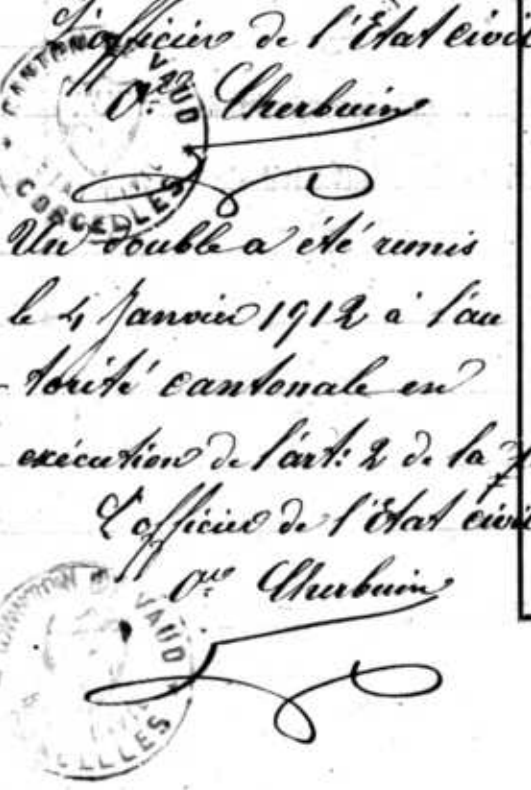 L'officier de l'État civil
Cherbuin
CANTON DE VAUD
CORCELLES
Un double a été remis
le 4 Janvier 1912 à l'au
torité cantonale en
exécution de l'art: 2 de la
L'officier de l'État civil
Cherbuin
VAUD